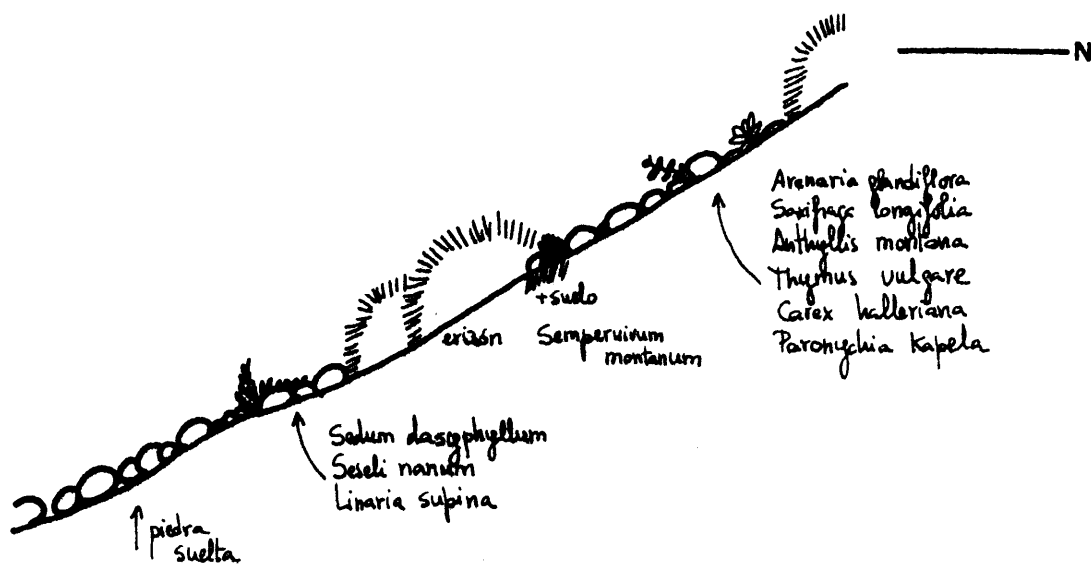 N
Arenaria grandiflora
Saxifraga longifolia
Anthyllis montana
Thymus vulgare
Carex halleriana
Paronychia Kapela
+suelo
erizón
Sempervivum
montanum
Sedum dasyphyllum
Seseli nanum
Linaria supina
piedra
suelta